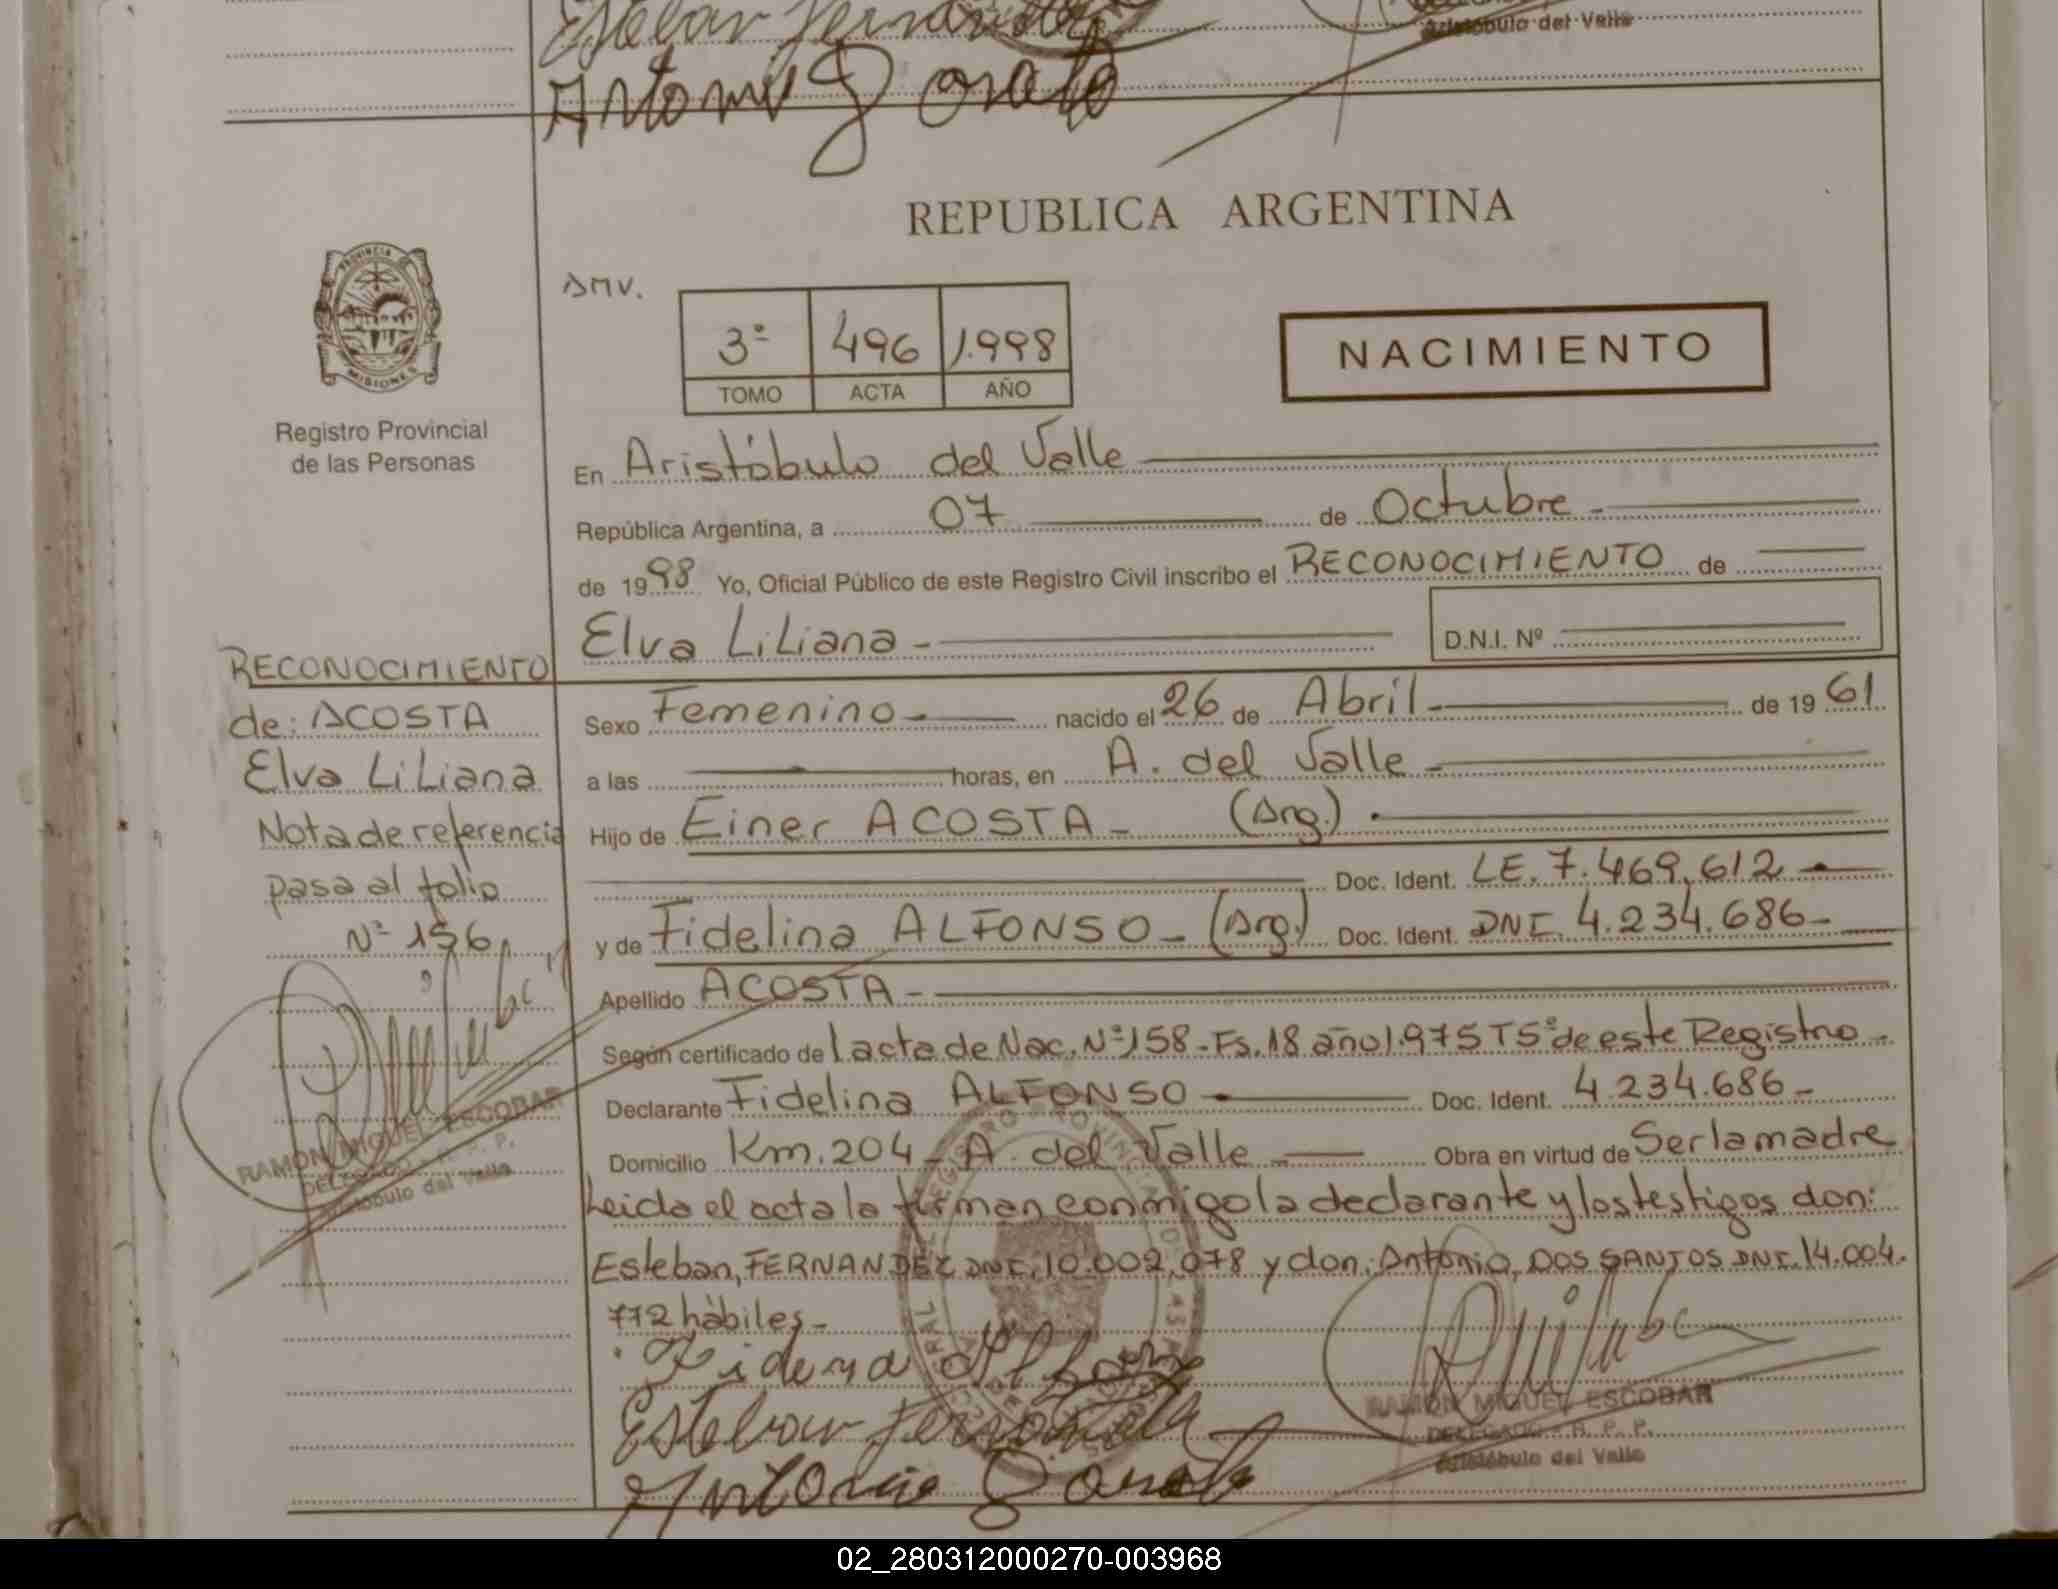 Esteban Fernandez
Aristóbulo del Valle
REPUBLICA ARGENTINA
PROVINCIA DE
MISIONES
AMV.
3º 496 1.998
TOMO ACTA AÑO
NACIMIENTO
Registro Provincial
de las Personas
En Aristóbulo del Valle
República Argentina, a 07 de Octubre -
de 1998 Yo, Oficial Público de este Registro Civil inscribo el RECONOCIMIENTO de
Elva LiLiana -
D.N.I. Nº
RECONOCIMIENTO
de: ACOSTA
Elva LiLiana
Nota de referencia
pasa al folio
Nº 156
RAMON MIGUEL ESCOBAR
DELEGADO - R. P. P.
Aristóbulo del Valle
Sexo Femenino - nacido el 26 de Abril - de 1961
a las horas, en A. del Valle -
Hijo de Einer ACOSTA - (Arg.) .
Doc. Ident. LE. 7.469.612 -
y de Fidelina ALFONSO - (Arg.) Doc. Ident. DNI. 4.234.686 -
Apellido ACOSTA -
Según certificado de l acta de Nac. Nº 158 - Fs. 18 año 1.975 T5º de este Registro -
Declarante Fidelina ALFONSO - Doc. Ident. 4.234.686 -
Domicilio Km. 204 - A. del Valle Obra en virtud de Ser la madre
Leida el acta la firman conmigo la declarante y los testigos don:
Esteban, FERNANDEZ DNI. 10.002.078 y don: Antonio, DOS SANTOS DNI. 14.004.
772 hàbiles -
Esteban Fernandez
Antonio
RAMON MIGUEL ESCOBAR
DELEGADO - R. P. P.
Aristóbulo del Valle
02_280312000270-003968